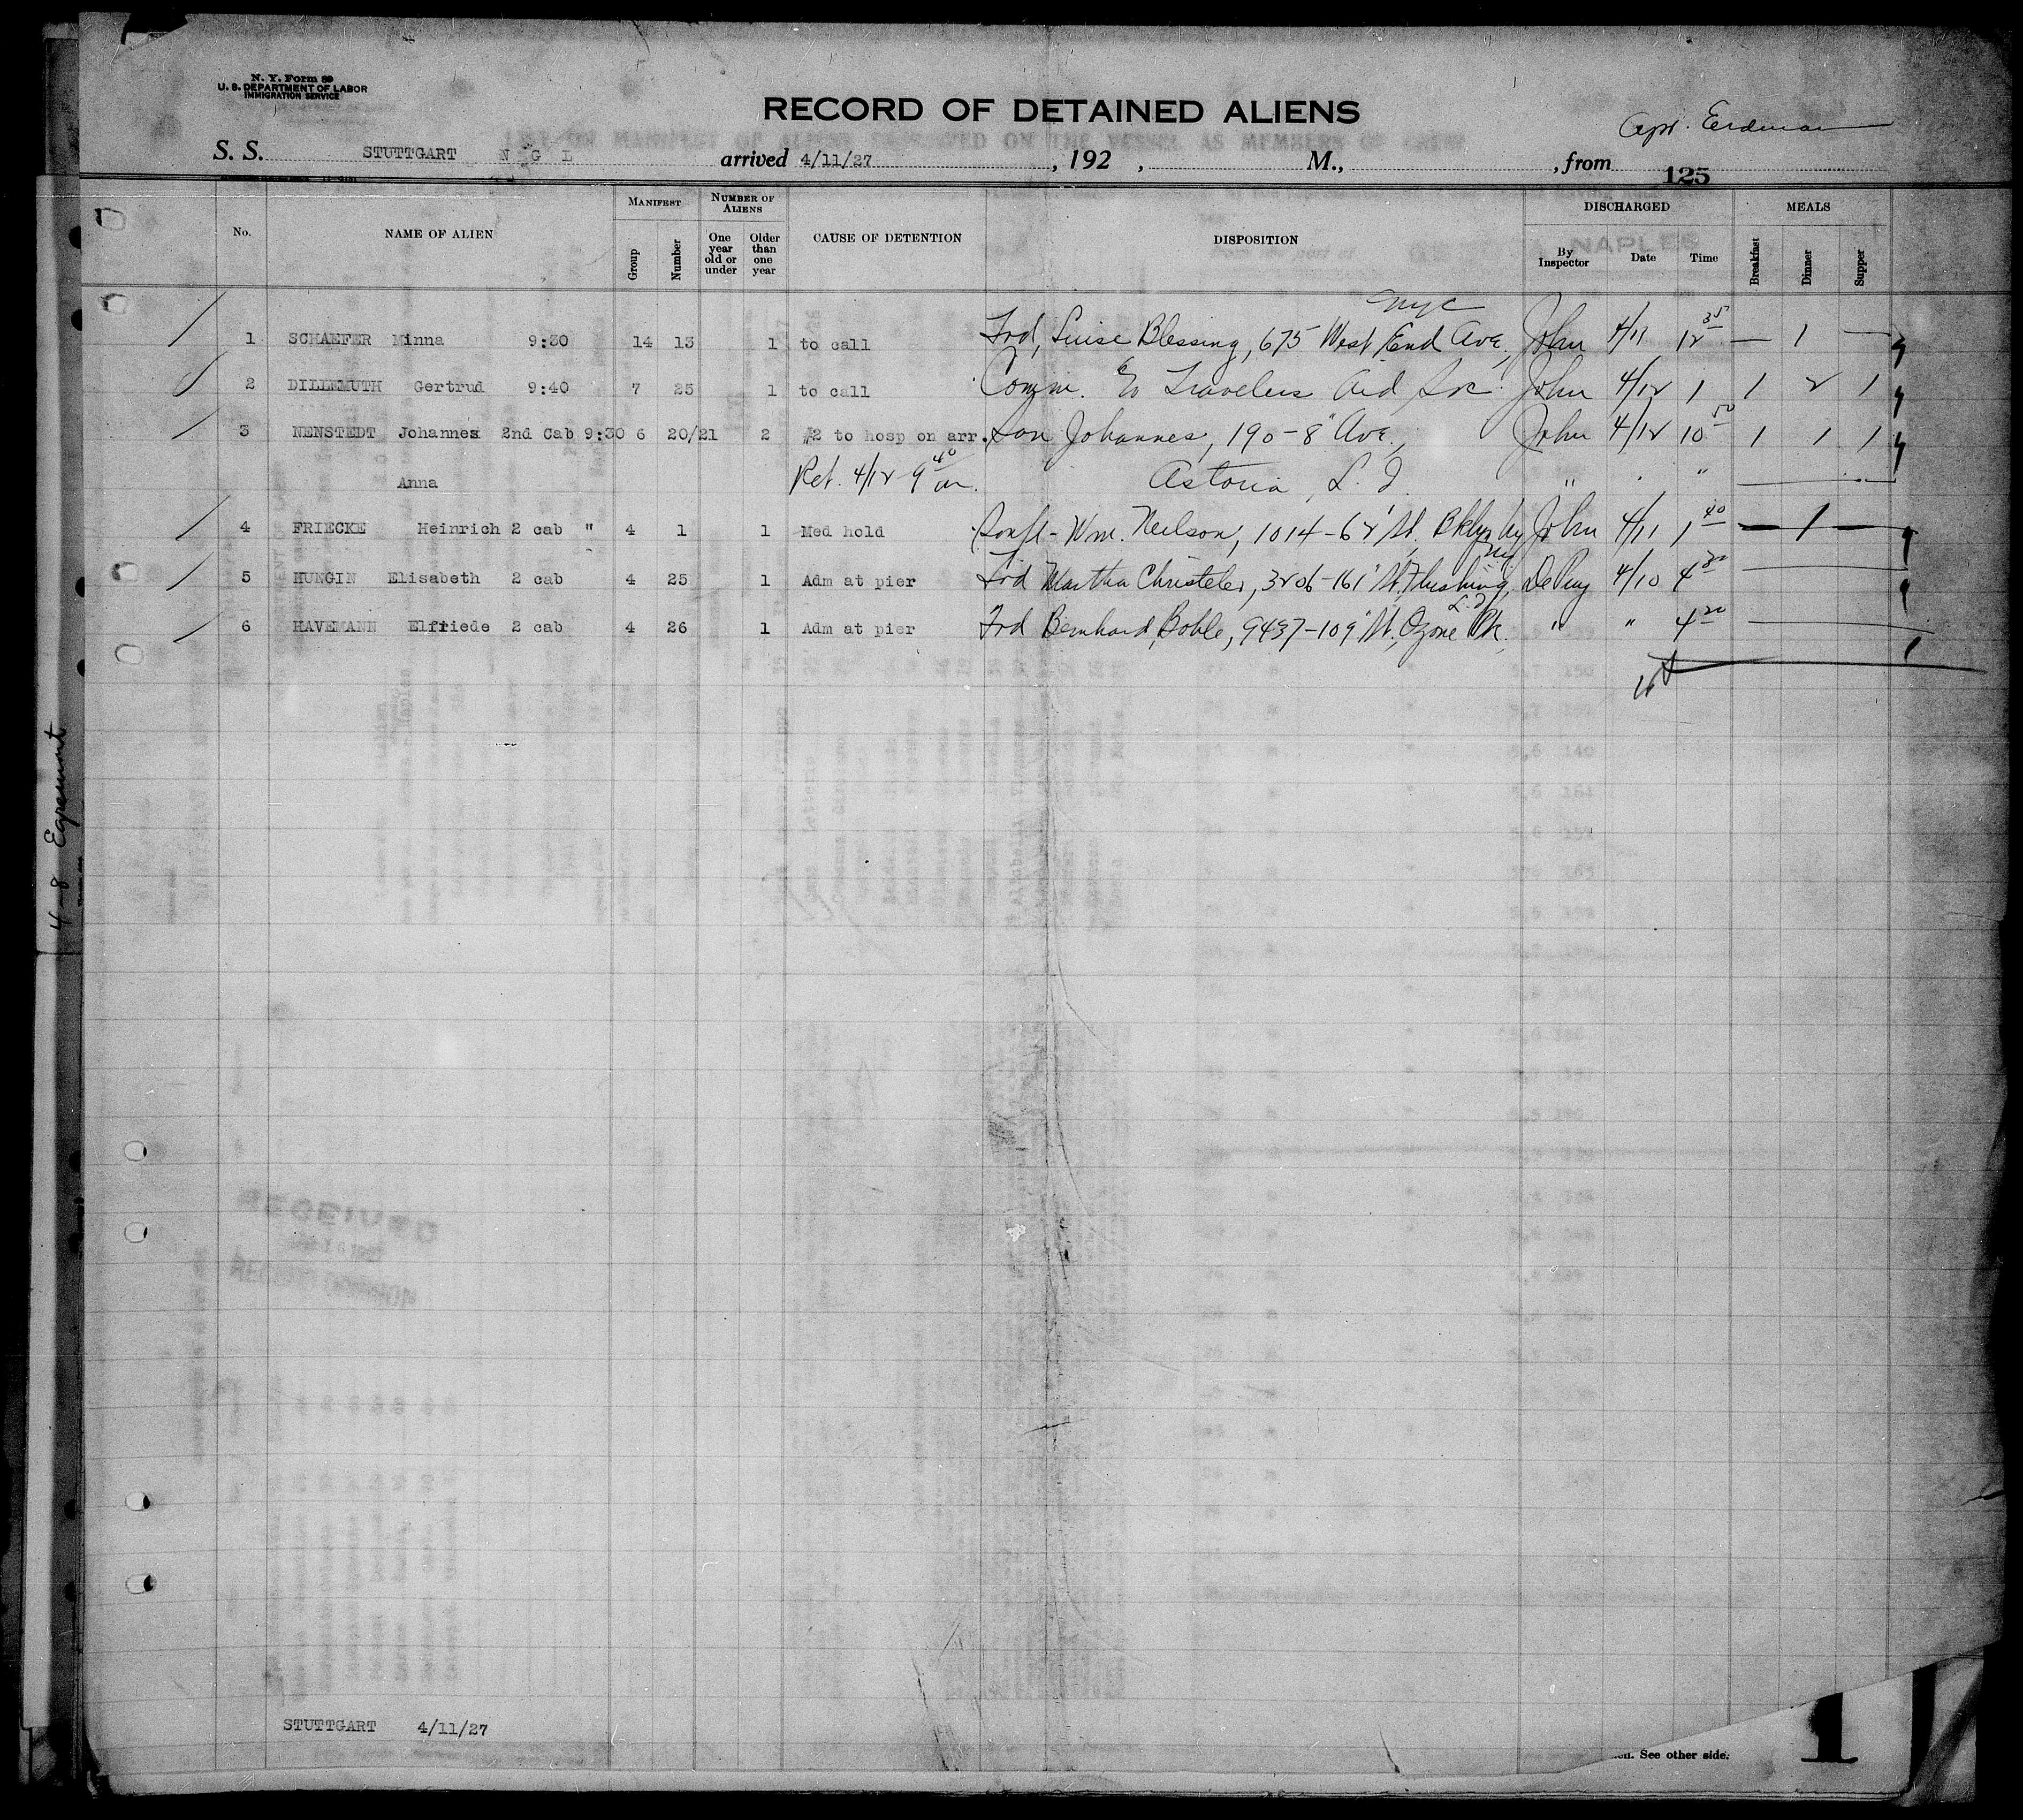 N. Y. Form 89
U. S. DEPARTMENT OF LABOR
IMMIGRATION SERVICE
RECORD OF DETAINED ALIENS
S. S. STUTTGART N G L arrived 4/11/27, 192 , M., , from 125
No. NAME OF ALIEN MANIFEST Group Number NUMBER OF ALIENS One year old or under Older than one year CAUSE OF DETENTION DISPOSITION DISCHARGED By Inspector Date Time MEALS Breakfast Dinner Supper
NAPLES
NYC
1 SCHAEFER Minna 9:30 14 13 1 to call Frd, Luise Blessing, 675 West End Ave, John 4/11 12 35 — 1 —
2 DILLEMUTH Gertrud 9:40 7 25 1 to call Comm. to Travelers Aid Soc. John 4/12 1 1 2 1
3 NENSTEDT Johannes 2nd Cab 9:30 6 20/21 2 #2 to hosp on arr. Son Johannes, 190-8" Ave., John 4/12 10 50 1 1 1
Anna Ret. 4/12 9 40 am. Astoria, L. I. " " "
4 FRIECKE Heinrich 2 cab " 4 1 1 Med hold Wm. Neilson, 1014-62' St. Bklyn, ny John 4/11 1 40 — 1 —
5 HUNGIN Elisabeth 2 cab 4 25 1 Adm at pier Frd Martha Christeler, 3206-161' St, Flushing, ny 4/10 4 20
6 HAVEMANN Elfriede 2 cab 4 26 1 Adm at pier Frd Bernhard Bohle, 9437-109' St, Ozone Pk. L. I. " " 4 20
4-8 Egremont
RECEIVED
STUTTGART 4/11/27
See other side.
1